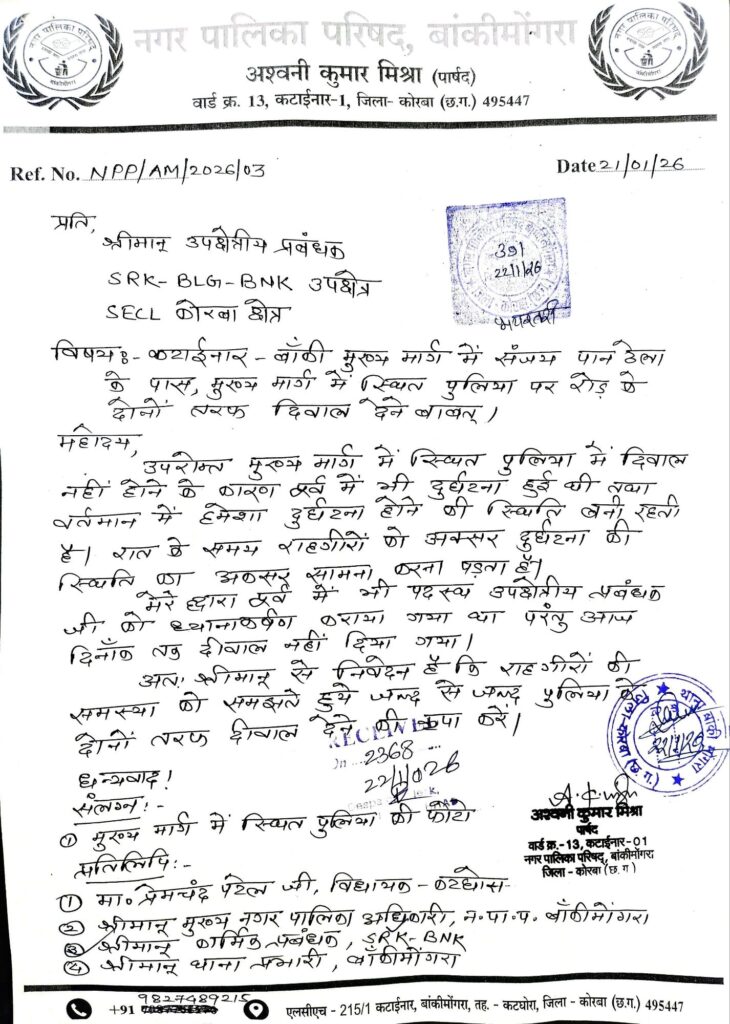 नगर पालिका परिषद, बांकीमोंगरा
अश्वनी कुमार मिश्रा (पार्षद)
वार्ड क्र. 13, कटाईनार-1, जिला- कोरबा (छ.ग.) 495447
Ref. No. NPP/AM/2026/03
Date 21/01/26
प्रति,
श्रीमान् उपक्षेत्रीय प्रबंधक
SRK-BLG-BNK उपक्षेत्र
SECL कोरबा क्षेत्र
391
22/1/26
विषय:- कटाईनार - बाँकी मुख्य मार्ग में संजय पान ठेला
के पास, मुख्य मार्ग में स्थित पुलिया पर रोड़ के
दोनों तरफ दिवाल देने बाबत्।
महोदय,
उपरोक्त मुख्य मार्ग में स्थित पुलिया में दिवाल
नहीं होने के कारण पूर्व में भी दुर्घटना हुई थी तथा
वर्तमान में हमेशा दुर्घटना होने की स्थिति बनी रहती
है। रात के समय राहगीरों को अक्सर दुर्घटना की
स्थिति का अक्सर सामना करना पड़ता है।
मेरे द्वारा पूर्व में भी पदस्थ उपक्षेत्रीय प्रबंधक
जी को ध्यानाकर्षण कराया गया था परंतु आज
दिनाँक तक दीवाल नहीं दिया गया।
अतः श्रीमान् से निवेदन है कि राहगीरों की
समस्या को समझते हुये जल्द से जल्द पुलिया के
दोनों तरफ दीवाल देने की कृपा करें।
RECEIVED
2368
धन्यवाद!
संलग्न:-
① मुख्य मार्ग में स्थित पुलिया की फोटो
अश्वनी कुमार मिश्रा
पार्षद
वार्ड क्र.-13, कटाईनार-01
नगर पालिका परिषद्, बांकीमोंगरा
जिला - कोरबा (छ.ग)
प्रतिलिपि:-
① मा. प्रेमचंद पटेल जी, विधायक - कटघोरा
② श्रीमान् मुख्य नगर पालिका अधिकारी, न.पा.प. बाँकीमोंगरा
③ श्रीमान् कार्मिक प्रबंधक, SRK-BNK
④ श्रीमान् थाना प्रभारी, बाँकीमोंगरा
+91 9827489215
एलसीएच - 215/1 कटाईनार, बांकीमोंगरा, तह. - कटघोरा, जिला - कोरबा (छ.ग.) 495447